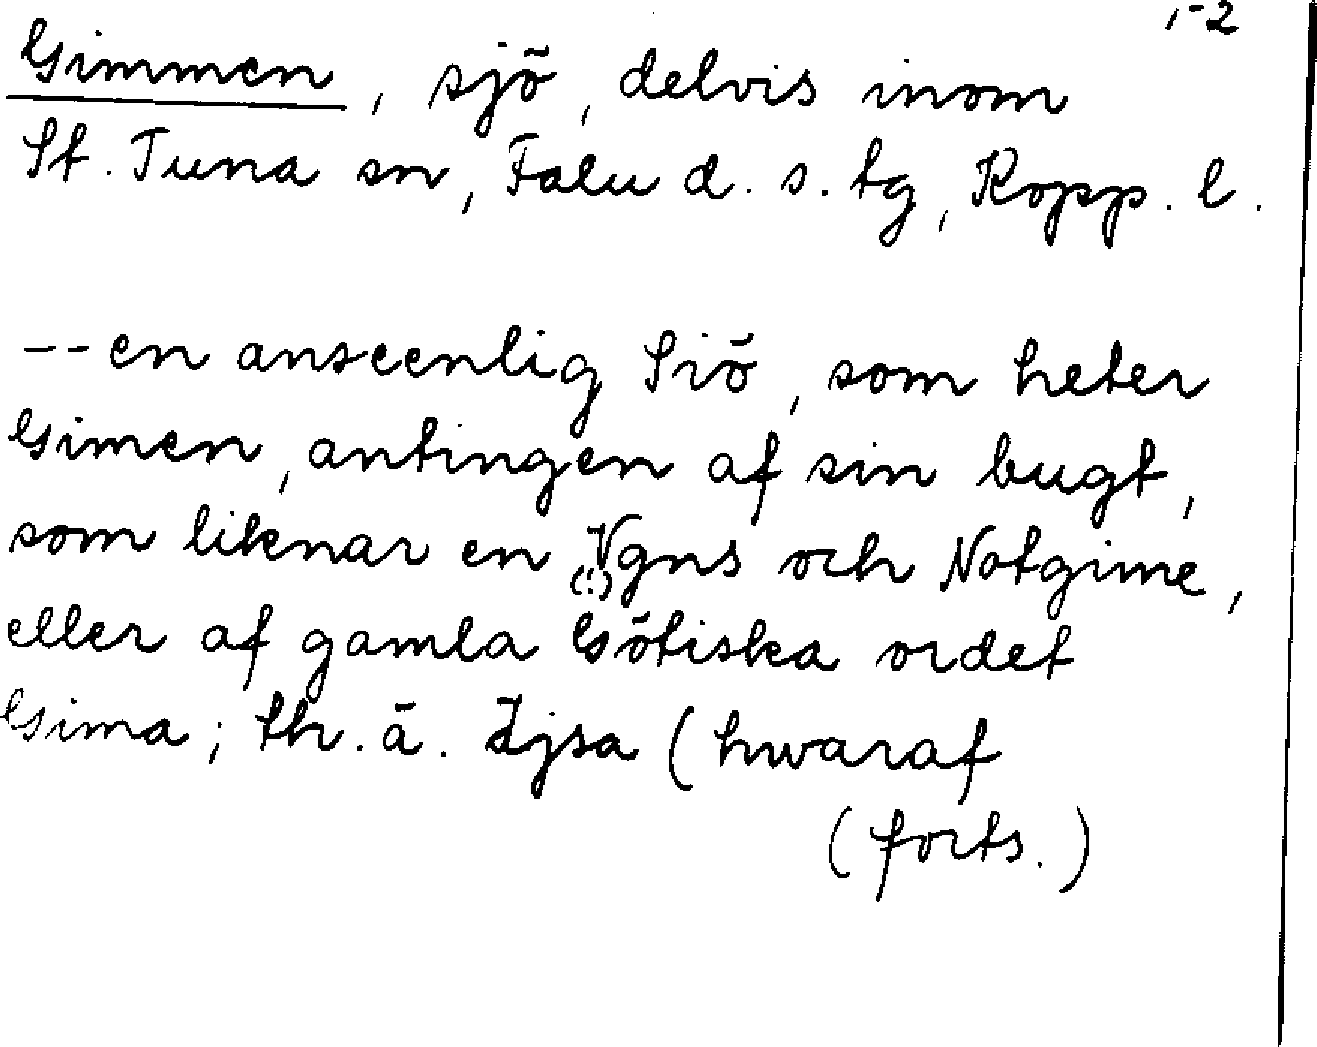 1-2
Gimmen, sjö, delvis inom
St. Tuna sn, Falu d. s. tg, Kopp. l.
-- en anseenlig Siö, som heter
Gimen, antingen af sin bugt,
som liknar en Vgns och Notgime,
(!)
eller af gamla Götiska ordet
Gima; th. ä. Ijsa (hwaraf
(forts.)